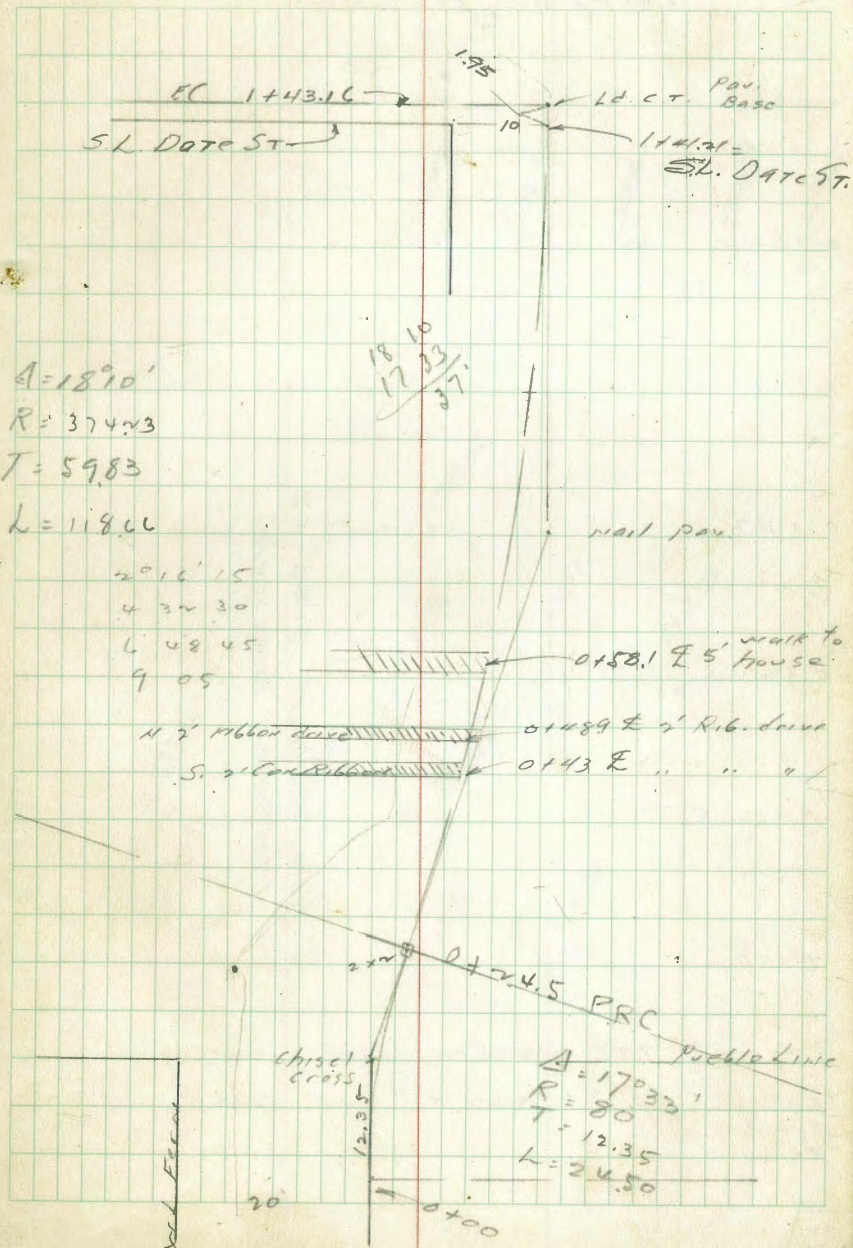 1.95
EC 1+43.16
Ld. C.T. Pav. Base
S.L. Date St
10
1+41.21 =
S.L. Date St.
18 10
17 33
37'
Δ = 18°10'
R = 374.23
T = 59.83
L = 118.66
nail pav.
2° 16' 15
4 32 30
6 48 45
9 05
0+58.1 ℄ 5' walk to house
N 2' ribbon drive
0+489 ℄ 2' Rib. drive
S. 2' Con Ribbon
0+43 ℄ " " "
2x2
0+24.5 PRC
Pueblo Line
chisel cross
12.35
Δ = 17°33'
R = 80
T = 12.35
L = 24.50
20
0+00